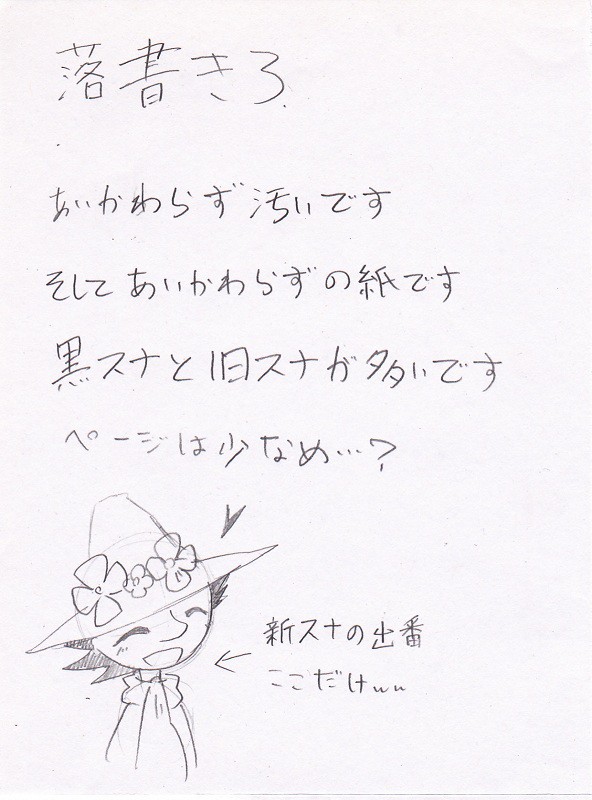 落書き3
あいかわらず汚いです
そしてあいかわらずの紙です
黒スナと旧スナが多いです
ページは少なめ…?
新スナの出番
ここだけww